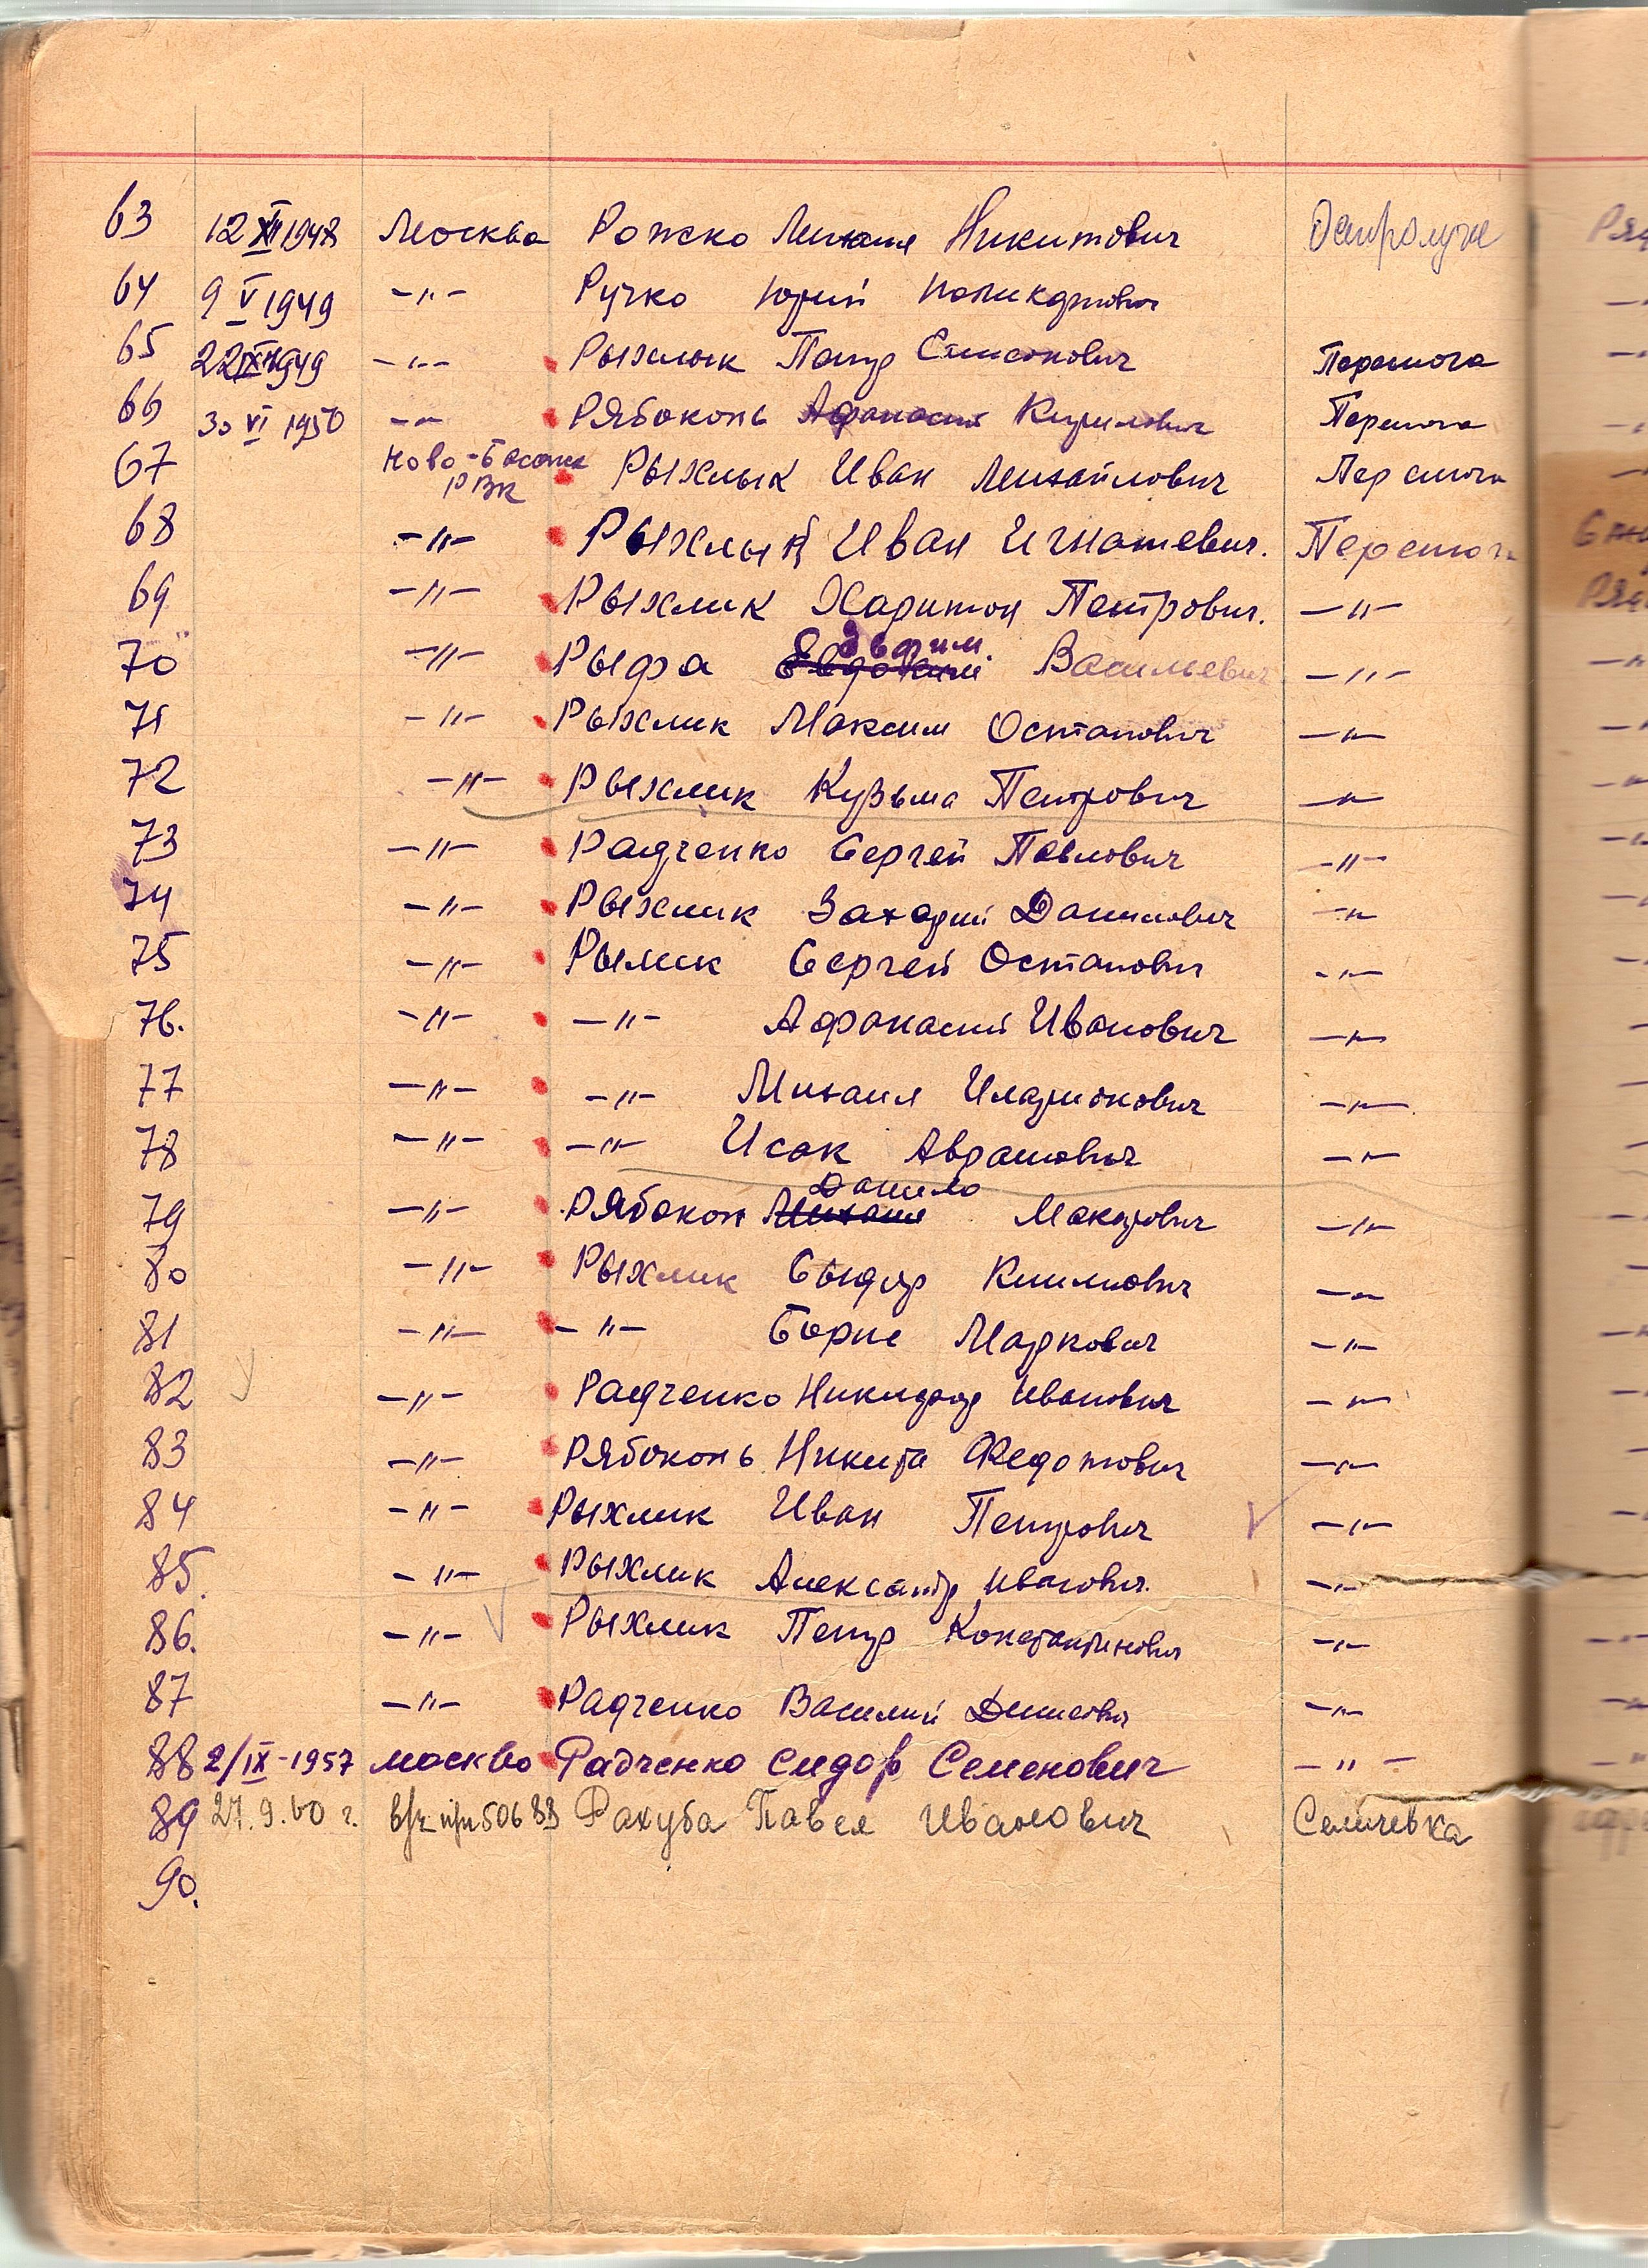 63 12 XII 1948 Москва Рожко Михаил Никитович Остролуче
64 9 V 1949 -"- Ручко Юрий Поликарпович
65 22 IX 1949 -"- Рыхлык Петр Самсонович Перемога
66 30 VI 1950 -"- Рябоконь Афанасий Кирилович Перемога
67 Ново-Басанск РВК Рыхлык Иван Михайлович Перемога
68 -"- Рыхлык Иван Игнатевич. Перемога
69 -"- Рыхлик Харитон Петрович. -"-
70 -"- Рыфа Евдоким Эвфим. Васильевич -"-
71 -"- Рыхлик Максим Остапович -"-
72 -"- Рыхлик Кузьма Петрович -"-
73 -"- Радченко Сергей Павлович -"-
74 -"- Рыхлик Захарий Данилович -"-
75 -"- Рылик Сергей Остапович -"-
76. -"- -"- Афанасий Иванович -"-
77 -"- -"- Михаил Иларионович -"-
78 -"- -"- Исак Аврамович -"-
79 -"- Рябокон Михаил Данило Макарович -"-
80 -"- Рыхлик Сыдор Климович -"-
81 -"- -"- Борис Маркович -"-
82 -"- Радченко Никифор Иванович -"-
83 -"- Рябоконь Никита Федотович -"-
84 -"- Рыхлик Иван Петрович -"-
85. -"- Рыхлик Александр Иванович. -"-
86. -"- Рыхлик Петр Константинович -"-
87 -"- Радченко Василий Денисович -"-
88 2/IX-1957 Москва Радченко Сидор Семенович -"-
89 27.9.60 г. Рахуба Павел Иванович Селичевка
90.